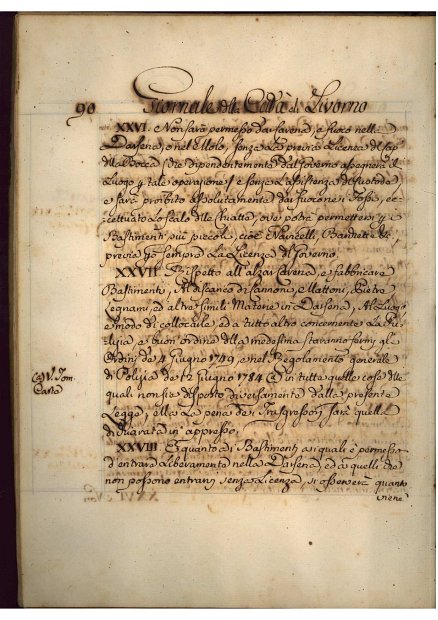 90 Giornale della Città di Livorno
XXVI. Non sarà permesso dar savena, e fuoco nella
Darsena, o nel Molo, senza La previa Licenza del Cap.
della Bocca (che dipendentemente dal Governo assegnerà il
Luogo tale operazione) e senza assistenza de Custode
e sarà proibito assolutamente dar fuoco nei Fossi, ec-
cettuato lo scalo delle Chiatte, ove potrà permettersi
Bastimenti più piccoli, cioè Navicelli,
previa però sempre La Licenza del Governo.
XXVII. Rispetto all'alzar savena, e fabbricare
Bastimenti, Allo sbarco di Cannoni, e Mattoni, Pietre
Legnami, ed altre simili Materie in Darsena, Al Luogo
e modo di collocarle, ed a tutto altro concernente La Pu-
lizia, e buon ordine della medesima staranno fermi gli
Ordini de 4 Giugno 1749, e nel Regolamento generale
di Polizia de 12 Giugno 1784 (a) in tutte quelle cose delle
quali non sia disposto diversamente dalla presente
Legge, e La pena dei Trasgressori sarà quella
dichiarata in appresso.
(a) V. Tom.
Casta
XXVIII. E quanto ai Bastimenti ai quali è permesso
d'entrare Liberamente nella Darsena, ed a quelli che
non possono entrarvi senza Licenza, si osserverà quanto
viene